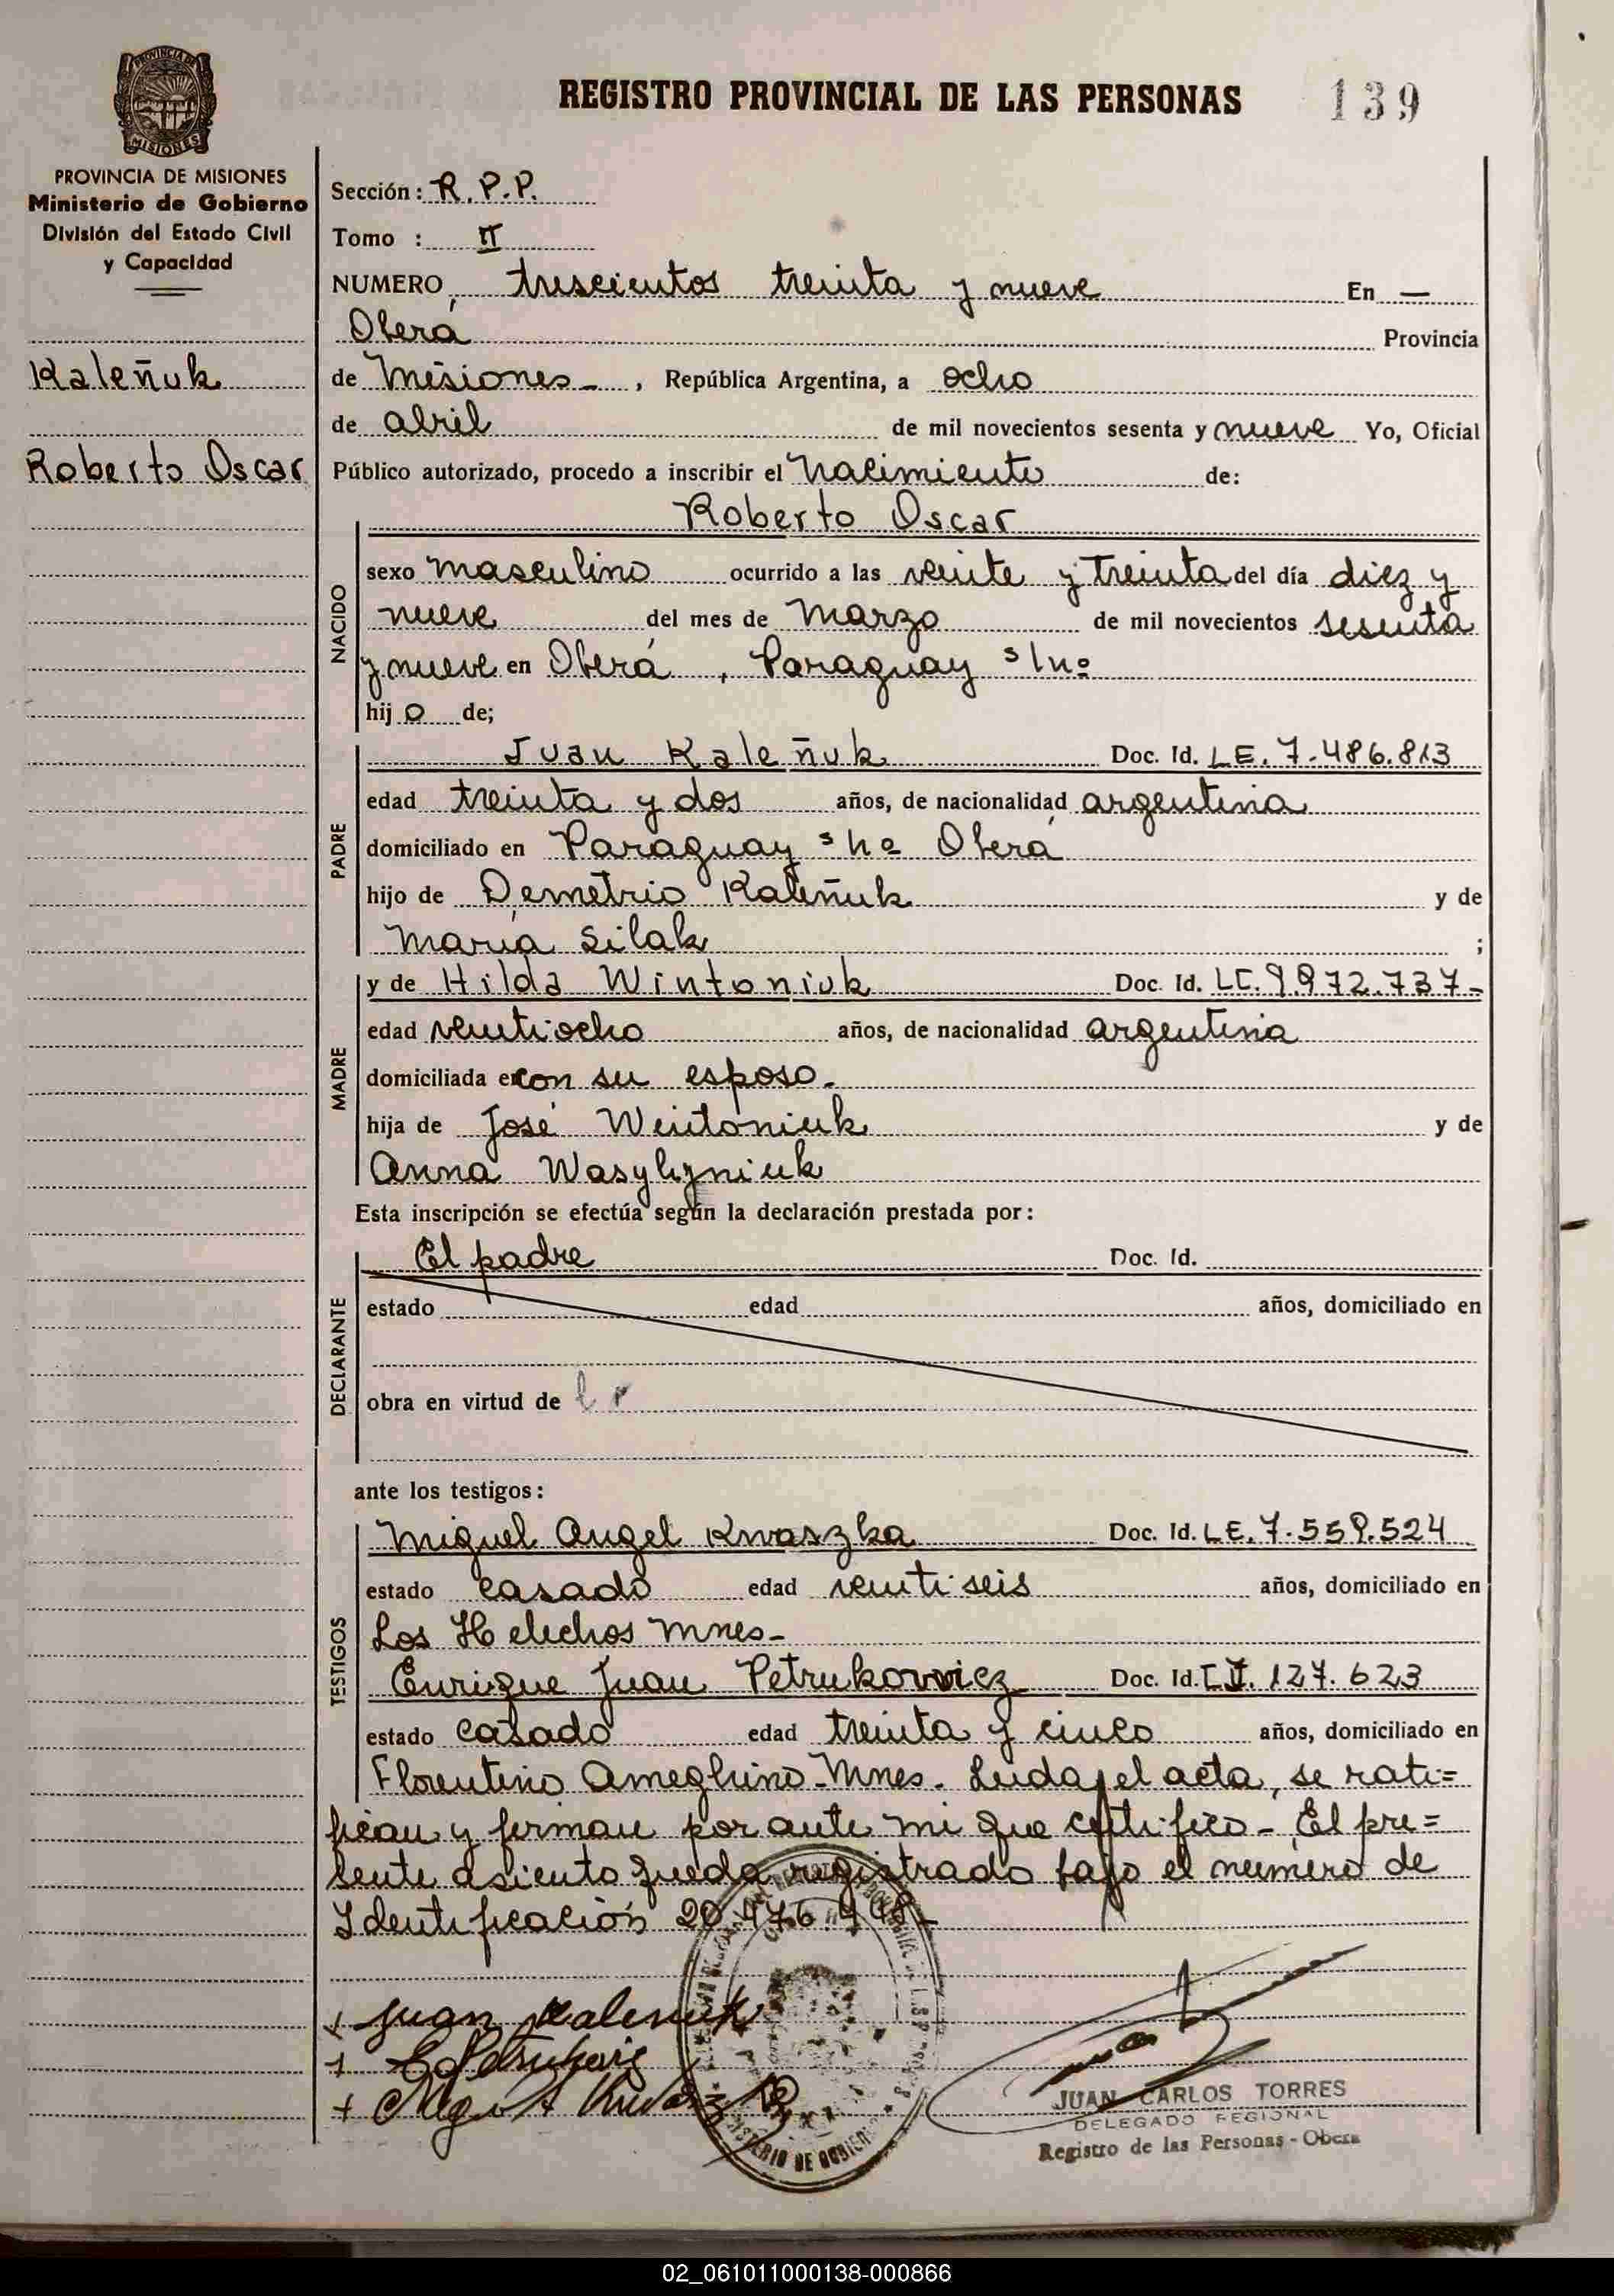 PROVINCIA DE
MISIONES
PROVINCIA DE MISIONES
Ministerio de Gobierno
División del Estado Civil
y Capacidad
Kaleñuk
Roberto Oscar
REGISTRO PROVINCIAL DE LAS PERSONAS 139
Sección: R.P.P.
Tomo : II
NUMERO, trescientos treinta y nueve En —
Oberá Provincia
de Misiones - , República Argentina, a ocho
de abril de mil novecientos sesenta y nueve Yo, Oficial
Público autorizado, procedo a inscribir el Nacimiento de:
Roberto Oscar
NACIDO
sexo masculino ocurrido a las veinte y treinta del día diez y
nueve del mes de Marzo de mil novecientos sesenta
y nueve en Oberá, Paraguay s/nº
hijo de;
PADRE
Juan Kaleñuk Doc. Id. LE. 7.486.813
edad treinta y dos años, de nacionalidad argentina
domiciliado en Paraguay s/nº Oberá
hijo de Demetrio Kaleñuk y de
María Silak ;
MADRE
y de Hilda Wintoniuk Doc. Id. LC. 9.972.737-
edad veintiocho años, de nacionalidad argentina
domiciliada en con su esposo.
hija de José Wintoniuk y de
Anna Wasylyzniuk
Esta inscripción se efectúa según la declaración prestada por:
DECLARANTE
El padre Doc. Id.
estado edad años, domiciliado en
obra en virtud de
ante los testigos:
TESTIGOS
Miguel Angel Kwaszka Doc. Id. LE. 7.559.524
estado casado edad veintiseis años, domiciliado en
Los Helechos Mnes-
Enrique Juan Petrukowicz Doc. Id. CI. 127.623
estado casado edad treinta y cinco años, domiciliado en
Florentino Ameghino-Mnes. Leida el acta, se rati=
fican y firman por ante mi que certifico - El pre=
sente asiento queda registrado bajo el número de
Identificación 20.476.
Juan Kaleñuk
JUAN CARLOS TORRES
DELEGADO REGIONAL
Registro de las Personas - Obera
02_061011000138-000866